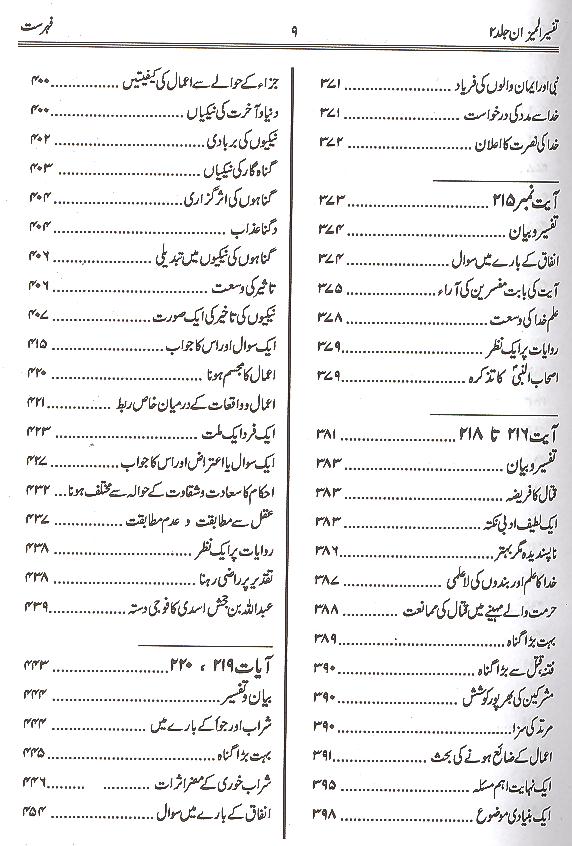 تفسیر المیزان جلد ۲
۹
فہرست
نبی اور ایمان والوں کی فریاد ۳۷۱
خدا سے مدد کی درخواست ۳۷۱
خدا کی نصرت کا اعلان ۳۷۲
آیت نمبر ۲۱۵ ۳۷۳
تفسیر و بیان ۳۷۴
انفاق کے بارے میں سوال ۳۷۴
آیت کی بابت مفسرین کی آراء ۳۷۵
علم خدا کی وسعت ۳۷۸
روایات پر ایک نظر ۳۷۹
اصحاب النبیؐ کا تذکرہ ۳۷۹
آیت ۲۱۶ تا ۲۱۸ ۳۸۱
تفسیر و بیان ۳۸۳
قتال کا فریضہ ۳۸۳
ایک لطیف ادبی نکتہ ۳۸۳
ناپسندیدہ مگر بہتر ۳۸۶
خدا کا علم اور بندوں کی لاعلمی ۳۸۷
حرمت والے مہینے میں قتال کی ممانعت ۳۸۸
بہت بڑا گناہ ۳۸۹
فتنہ قتل سے بڑا گناہ ۳۹۰
مشرکین کی بھرپور کوشش ۳۹۰
مرتد کی سزا ۳۹۰
اعمال کے ضائع ہونے کی بحث ۳۹۱
ایک نہایت اہم مسئلہ ۳۹۵
ایک بنیادی موضوع ۳۹۸
جزاء کے حوالے سے اعمال کی کیفیتیں ۴۰۰
دنیا و آخرت کی نیکیاں ۴۰۰
نیکیوں کی بربادی ۴۰۲
گناہ گار کی نیکیاں ۴۰۳
گناہوں کی اثر گزاری ۴۰۴
دگنا عذاب ۴۰۴
گناہوں کی نیکیوں میں تبدیلی ۴۰۶
تاثیر کی وسعت ۴۰۶
نیکیوں کی تاخیر کی ایک صورت ۴۰۷
ایک سوال اور اس کا جواب ۴۱۵
اعمال کا مجسم ہونا ۴۲۰
اعمال و واقعات کے درمیان خاص ربط ۴۲۱
ایک فرد ایک ملت ۴۲۳
ایک سوال یا اعتراض اور اس کا جواب ۴۲۷
احکام کا سعادت و شقاوت کے حوالہ سے مختلف ہونا ۴۳۲
عقل سے مطابقت و عدم مطابقت ۴۳۷
روایات پر ایک نظر ۴۳۸
تقدیر پر راضی رہنا ۴۳۸
عبداللہ بن جحش اسدی کا فوجی دستہ ۴۳۹
آیات ۲۱۹ ، ۲۲۰ ۴۴۳
بیان و تفسیر ۴۴۴
شراب اور جوا کے بارے میں ۴۴۴
بہت بڑا گناہ ۴۴۵
شراب خوری کے مضر اثرات ۴۴۶
انفاق کے بارے میں سوال ۴۵۴